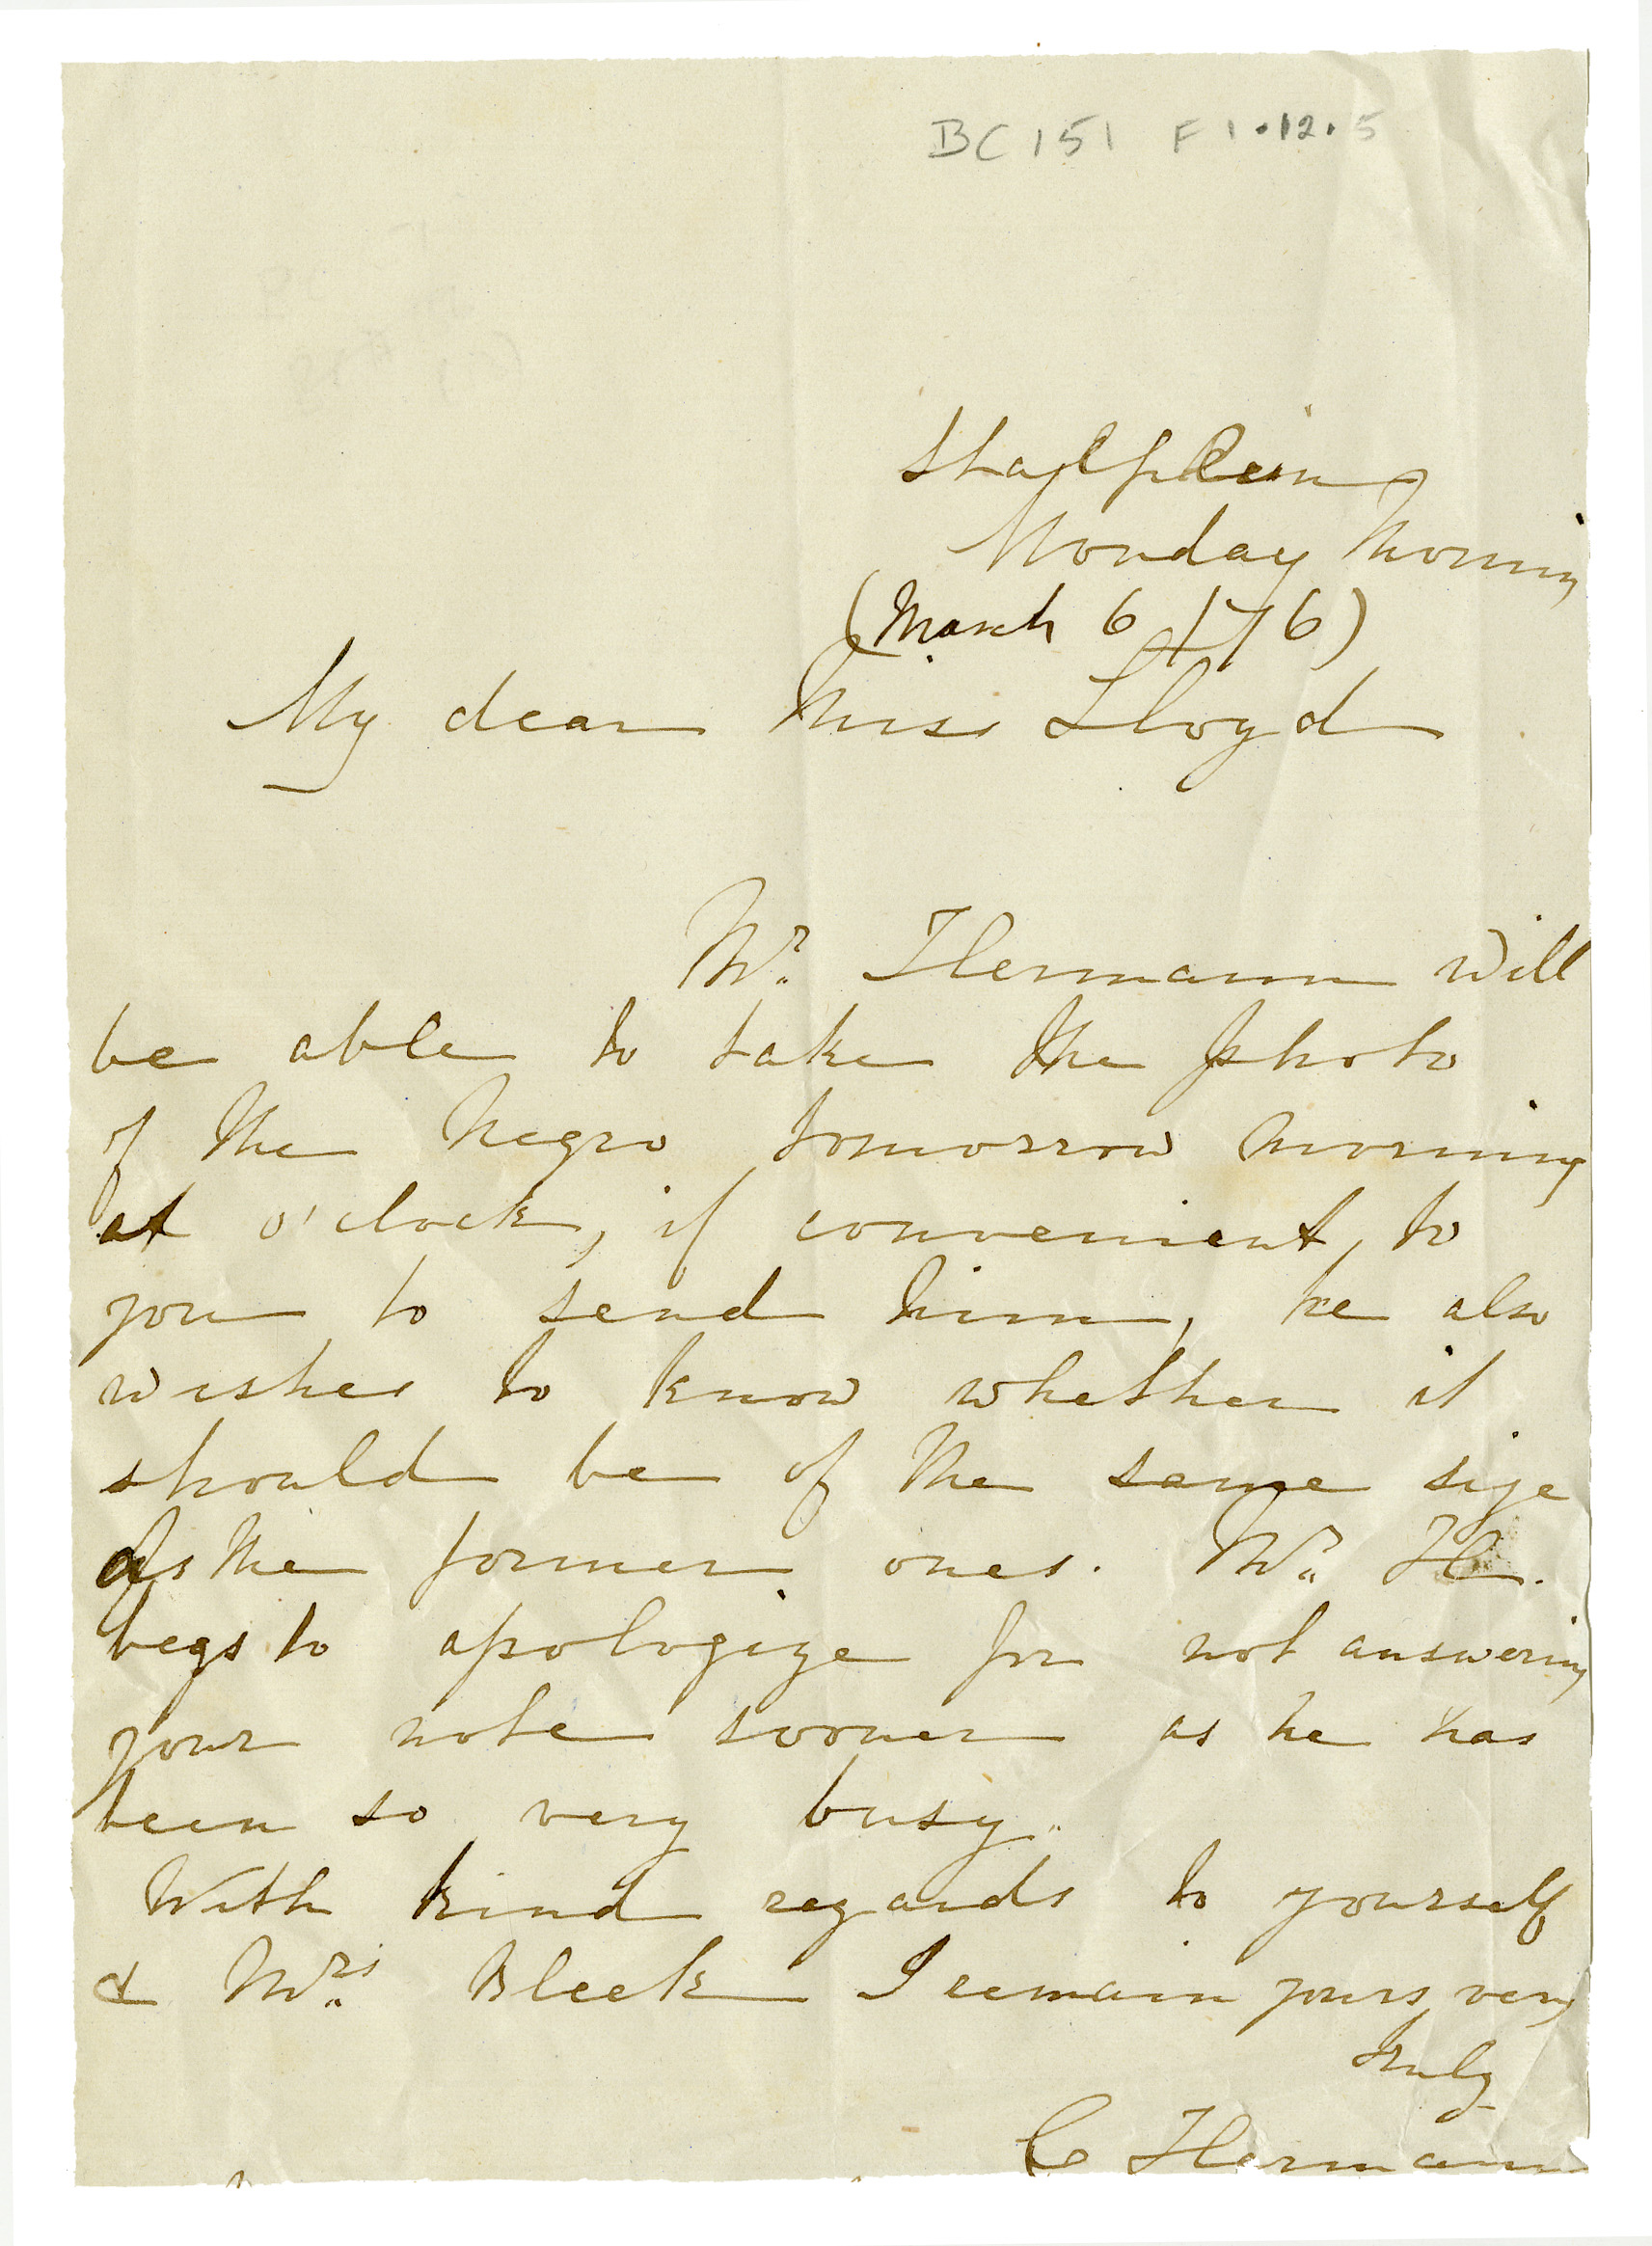 BC 151 F 1.12.5
Stalplein
Monday Morning
(March 6 / 76)
My dear Miss Lloyd
Mr. Hermann will
be able to take the photo
of the Negro tomorrow morning
at o'clock, if convenient, to
you to send him, he also
wishes to know whether it
should be of the same size
as the former ones. Mr. H.
begs to apologize for not answering
your note sooner as he has
been so very busy.
With kind regards to yourself
& Mrs. Bleek I remain yours very
truly
C Hermann